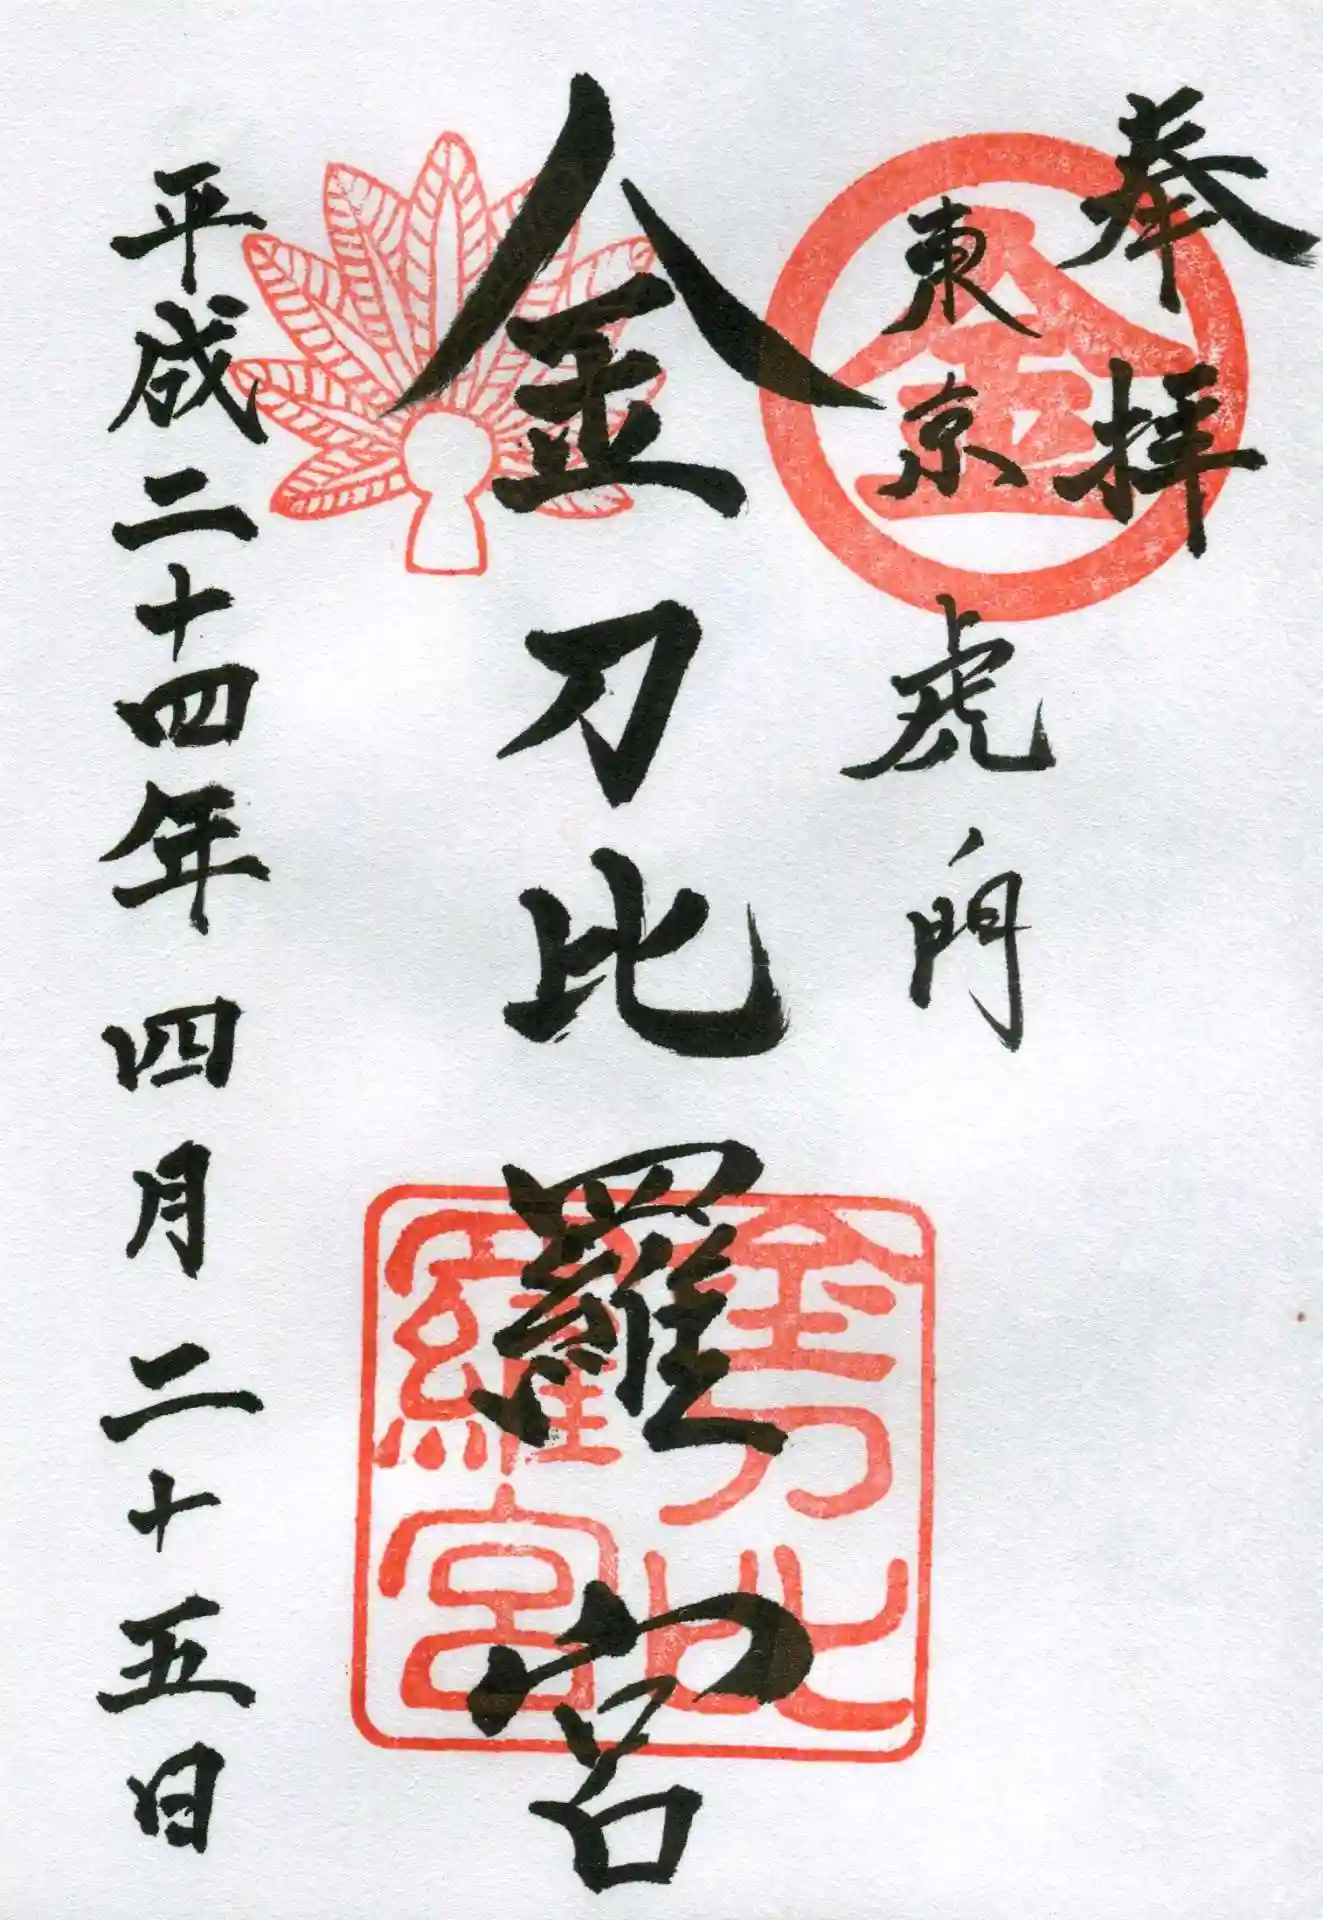 奉拝
東京虎ノ門
金刀比羅宮
平成二十四年四月二十五日
金
金刀比
羅宮